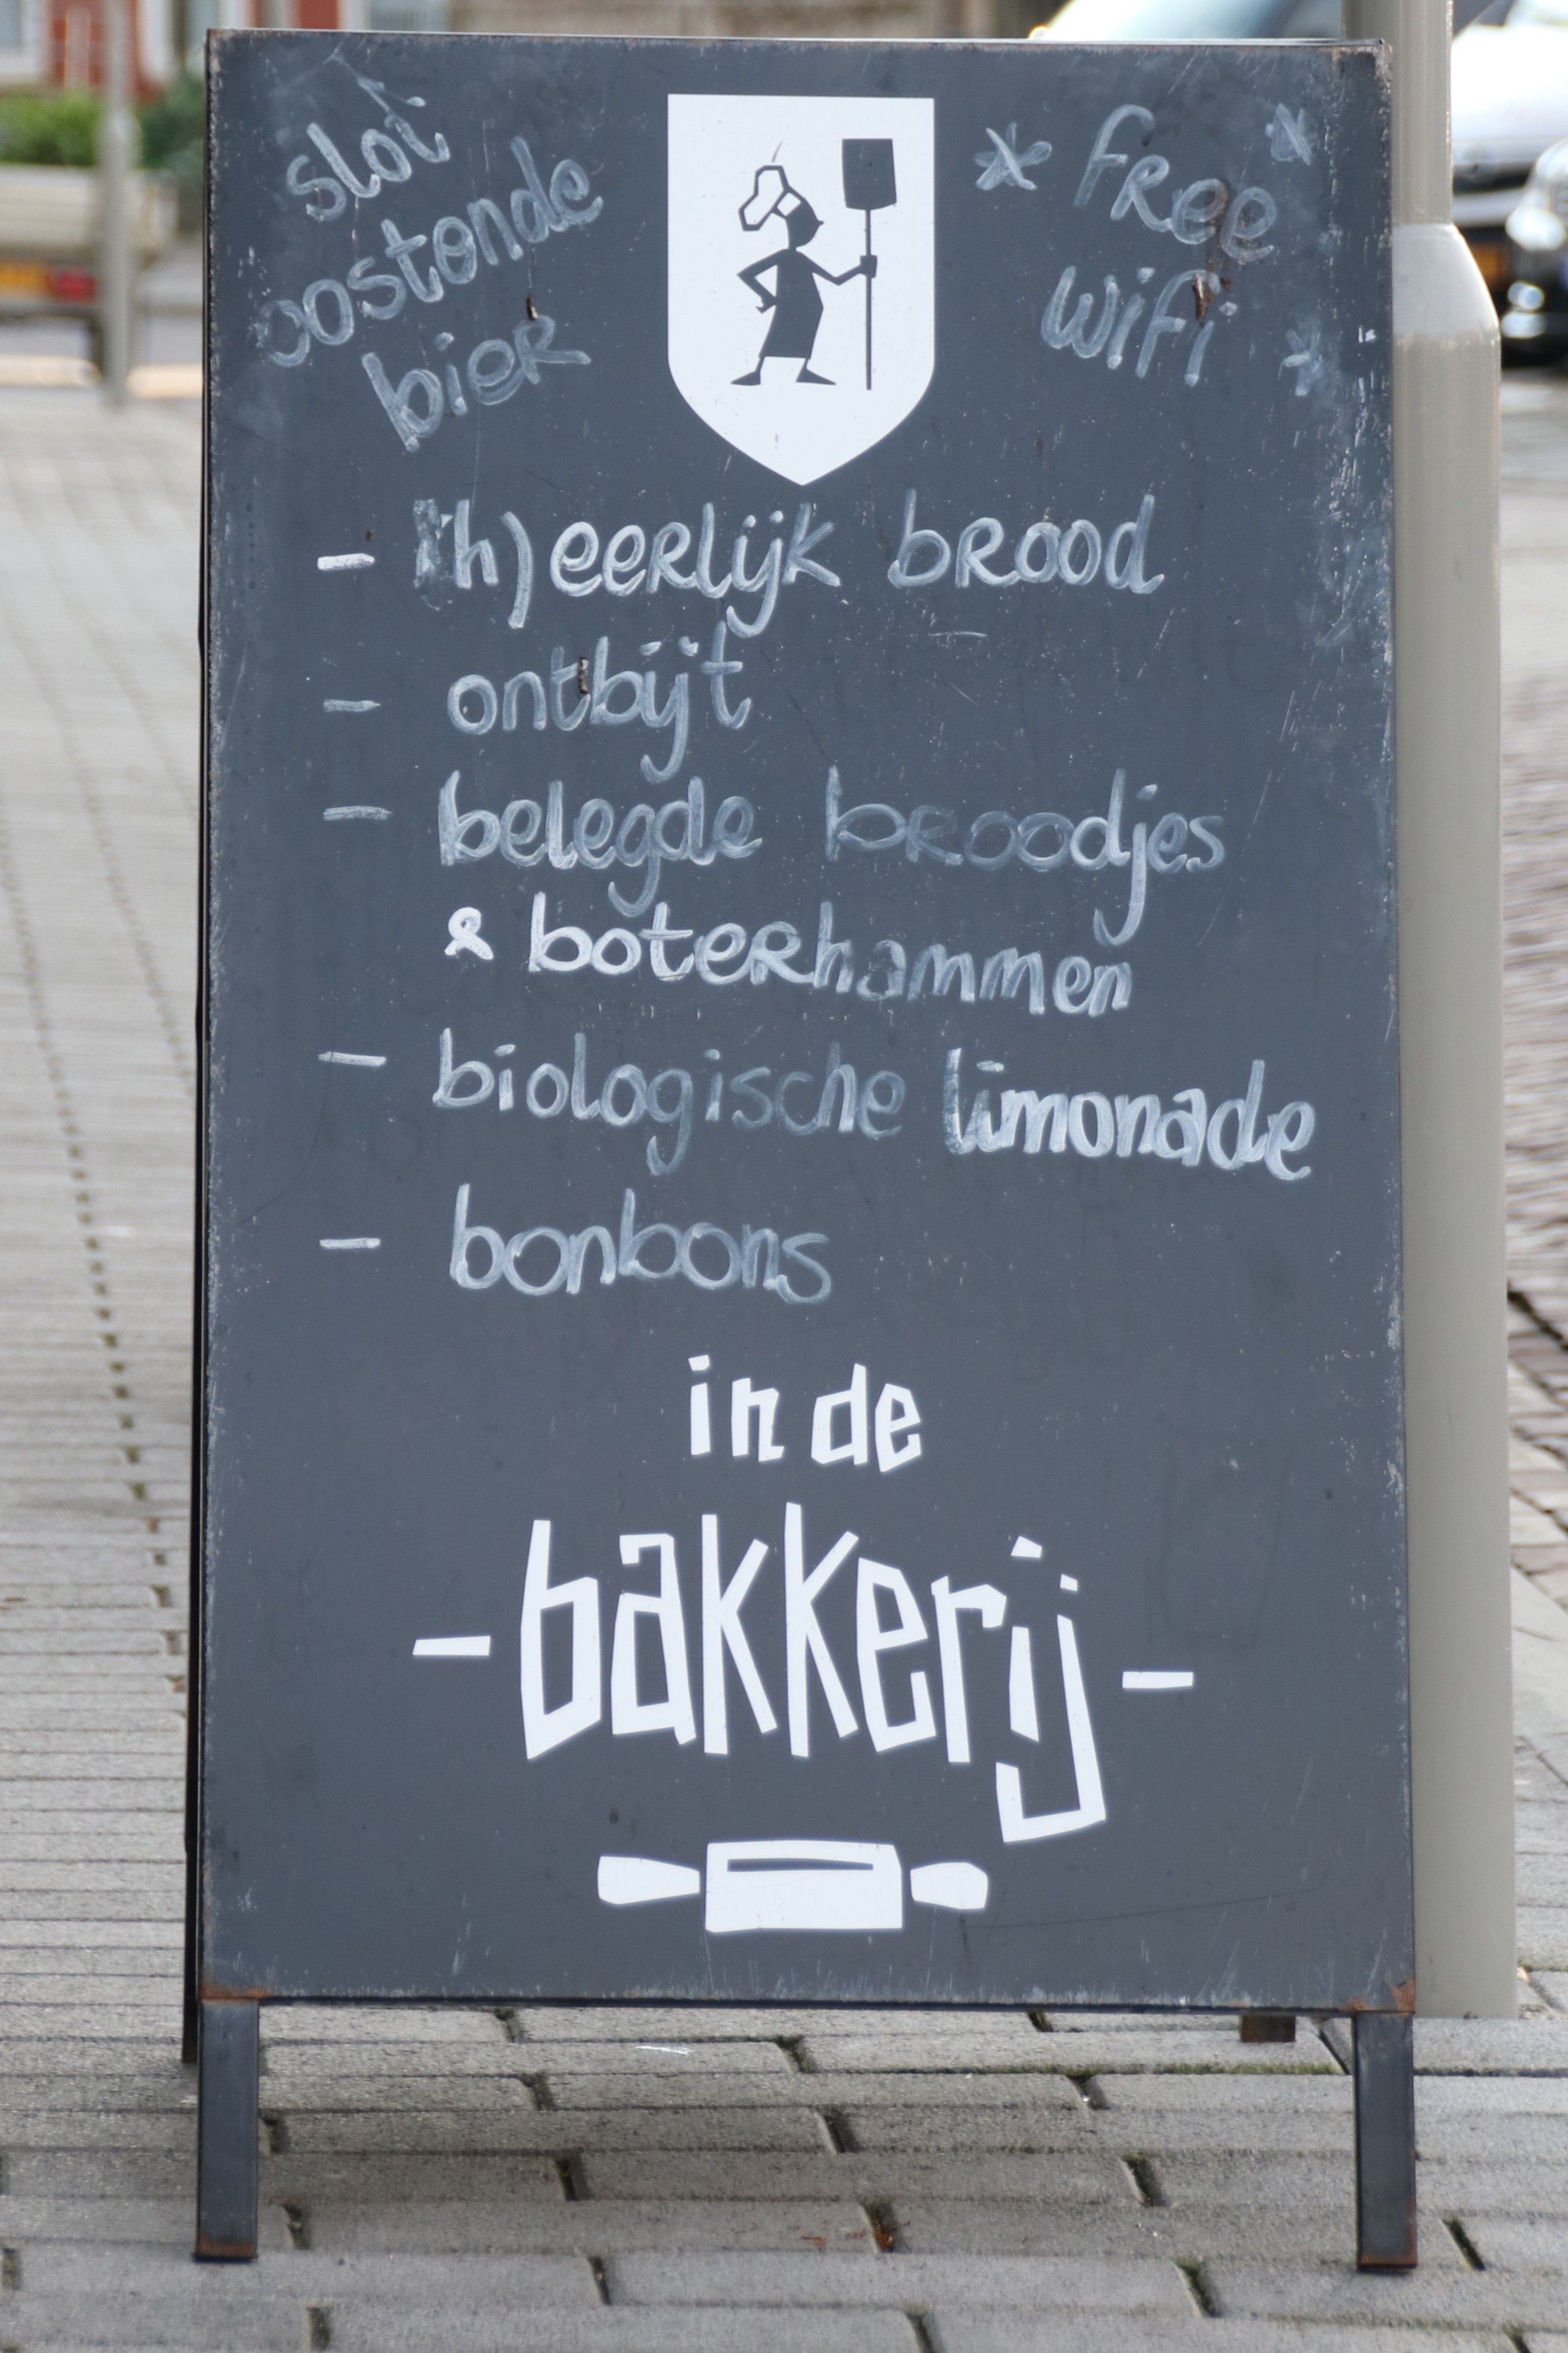 slot
oostende
bier
* free *
wifi *
- (h)eerlijk brood
- ontbijt
- belegde broodjes
& boterhammen
- biologische limonade
- bonbons
in de
- bakkerij -